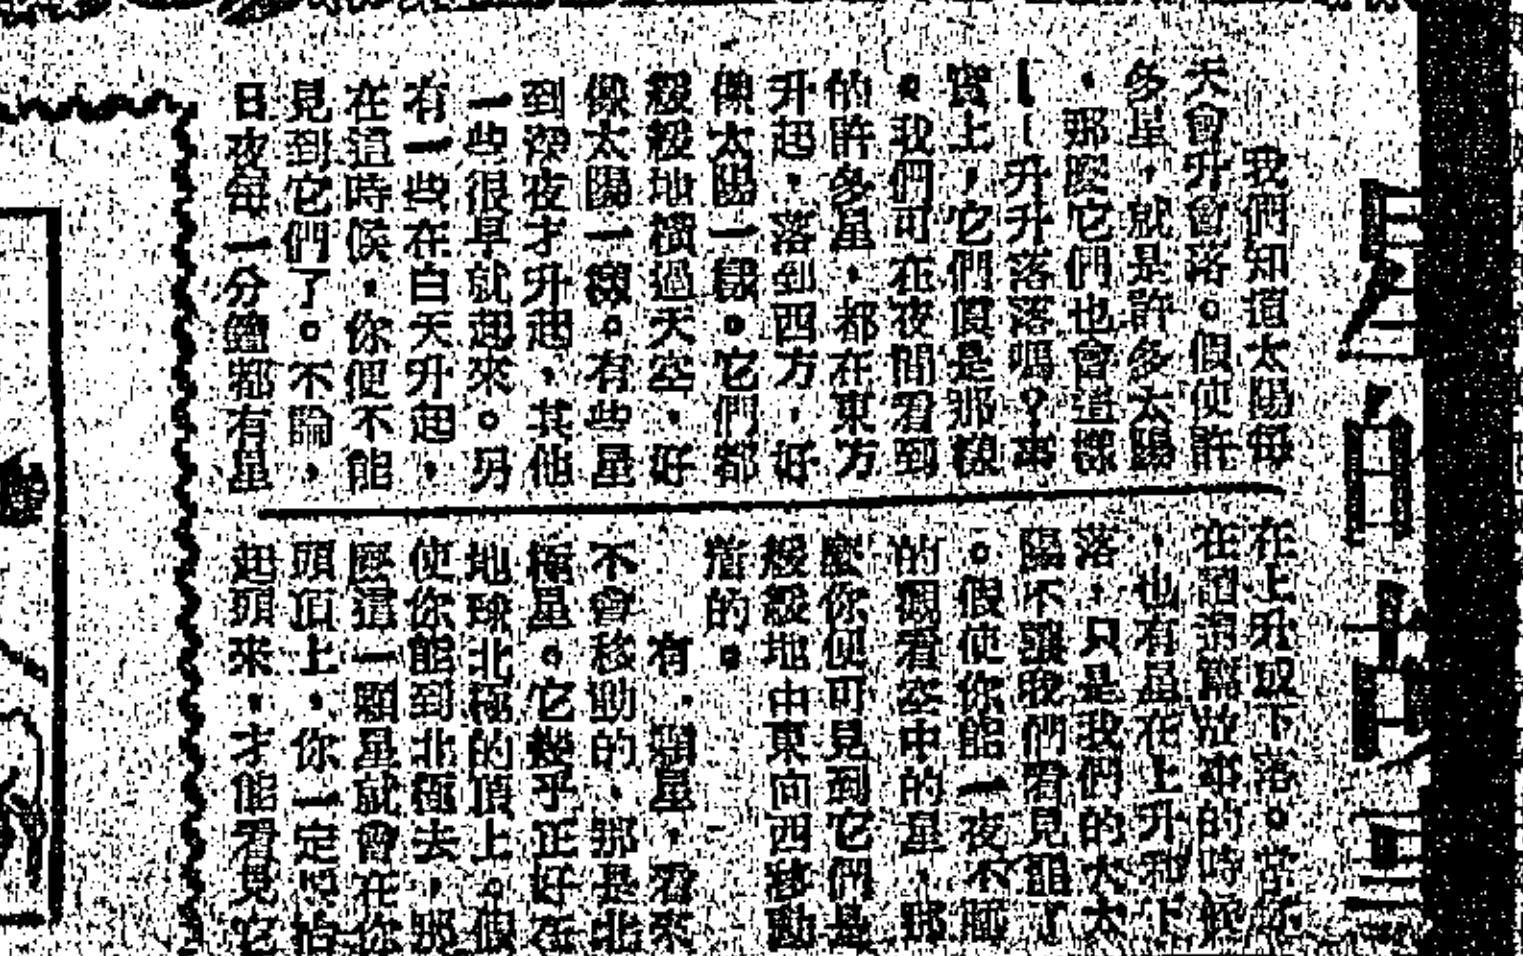 我們知道太陽每
天會升會落。假使許
多星，就是許多太陽
，那麼它們也會這樣
——升升落落嗎？事
實上，它們眞是那樣
。我們可在夜間看到
的許多星，都在東方
升起，落到西方，好
像太陽一樣。它們都
緩緩地橫過天空，好
像太陽一樣。有些星
到深夜才升起，其他
一些很早就起來。另
有一些在白天升起，
在這時候，你便不能
見到它們了。不論，
日夜每一分鐘都有星
在上升或下落。當你
在讀這篇故事的時候
，也有星在上升和下
落，只是我們的太太
陽不讓我們看見罷了
。假使你能一夜不睡
的觀看空中的星，那
麼你便可見到它們是
緩緩地由東向西移動
着的。
有一顆星，看來
不會移動的，那是北
極星。它幾乎正好在
地球北極的頂上。假
使你能到北極去，那
麼這一顆星就會在你
頭頂上，你一定
起頭來，才能看見它